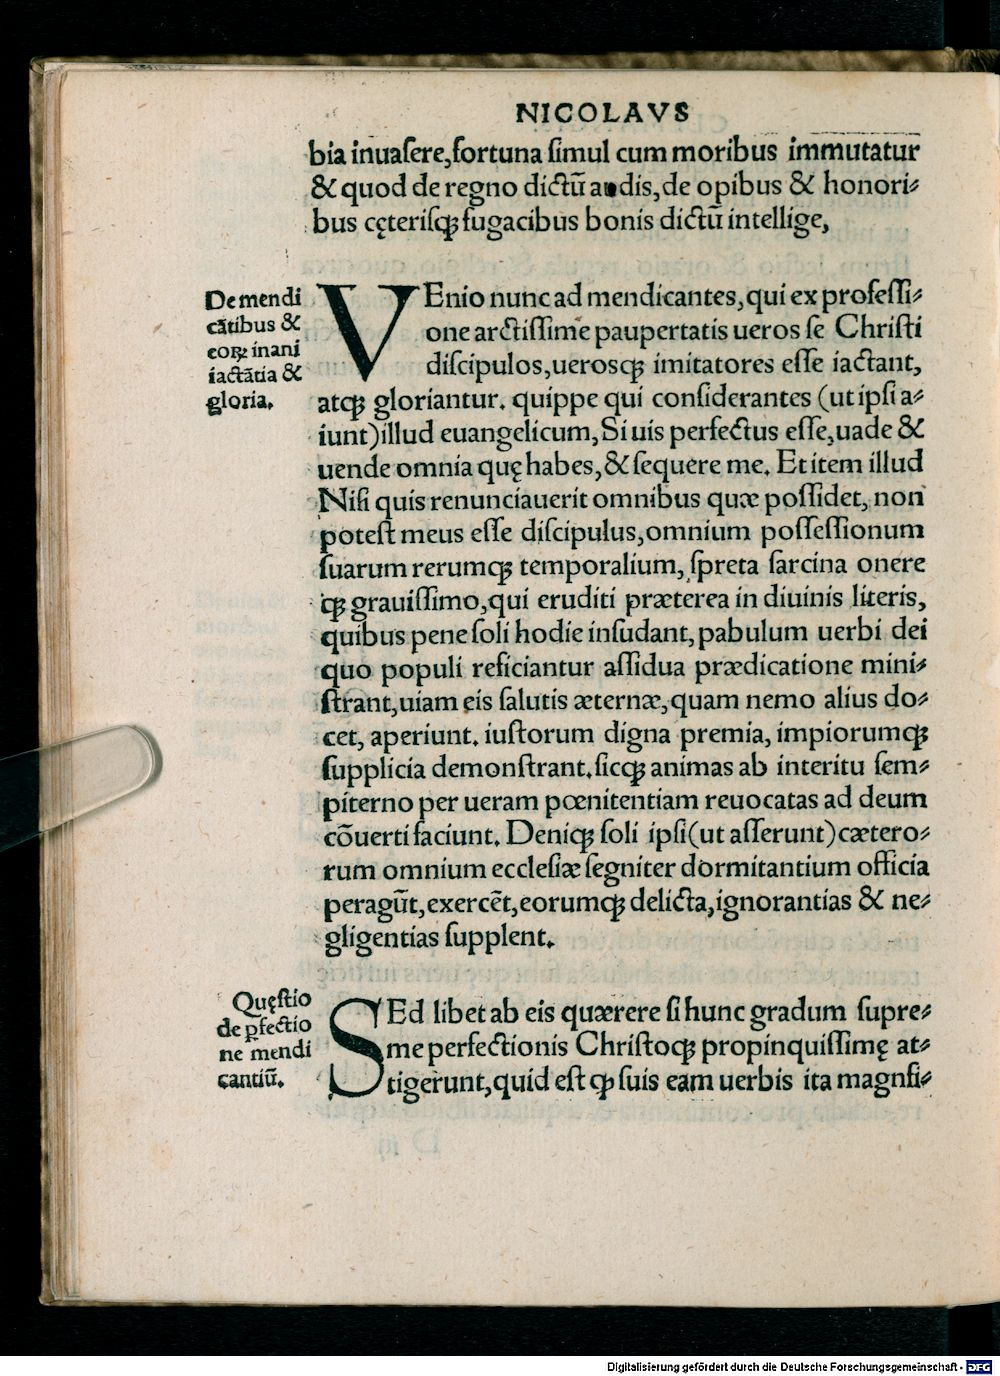 NICOLAVS
bia inuaſere,fortuna ſimul cum moribus immutatur
& quod de regno dictũ audis,de opibus & honori⸗
bus cęteriſqꝫ fugacibus bonis dictũ intellige,
De mendi
cãtibus &
eoꝝ inani
iactãtia &
gloria.
VEnio nunc ad mendicantes,qui ex profeſſi⸗
one arctiſſime paupertatis ueros ſe Chriſti
diſcipulos,uerosqꝫ imitatores eſſe iactant,
atqꝫ gloriantur. quippe qui conſiderantes (ut ipſi a⸗
iunt)illud euangelicum,Si uis perfectus eſſe,uade &
uende omnia quę habes,& ſequere me. Et item illud
Niſi quis renunciauerit omnibus quæ poſſidet, non
poteſt meus eſſe diſcipulus,omnium poſſeſſionum
ſuarum rerumqꝫ temporalium, ſpreta ſarcina onere
qꝫ grauiſſimo,qui eruditi præterea in diuinis literis,
quibus pene ſoli hodie inſudant,pabulum uerbi dei
quo populi reficiantur aſſidua prædicatione mini⸗
ſtrant,uiam eis ſalutis æternæ,quam nemo alius do⸗
cet, aperiunt. iuſtorum digna premia, impiorumqꝫ
ſupplicia demonſtrant.ſicqꝫ animas ab interitu ſem⸗
piterno per ueram pœnitentiam reuocatas ad deum
cõuerti faciunt. Deniqꝫ ſoli ipſi(ut aſſerunt)cætero⸗
rum omnium eccleſiæ ſegniter dormitantium officia
peragũt,exercẽt,eorumqꝫ delicta,ignorantias & ne⸗
gligentias ſupplent.
Quęſtio
de ꝑfectio
ne mendi
cantiũ.
SEd libet ab eis quærere ſi hunc gradum ſupre⸗
me perfectionis Chriſtoqꝫ propinquiſſimę at⸗
tigerunt,quid eſt qꝫ ſuis eam uerbis ita magnfi⸗
Digitalisierung gefördert durch die Deutsche Forschungsgemeinschaft - DFG